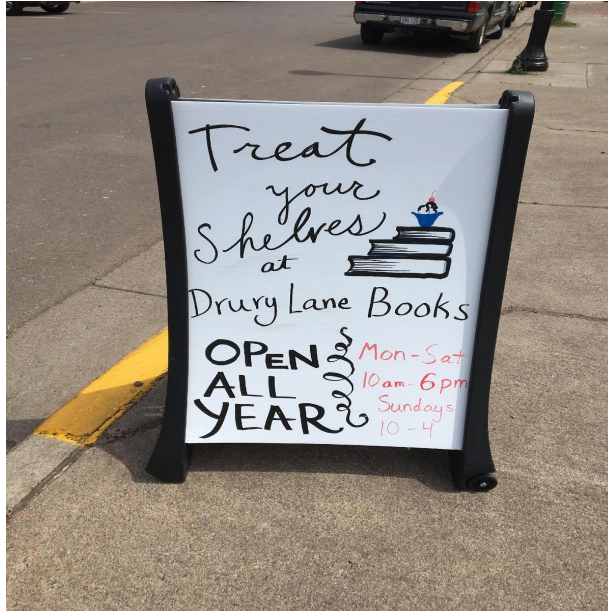 Treat
your
Shelves
at
Drury Lane Books
OPEN
ALL
YEAR
Mon-Sat
10am-6pm
Sundays
10-4